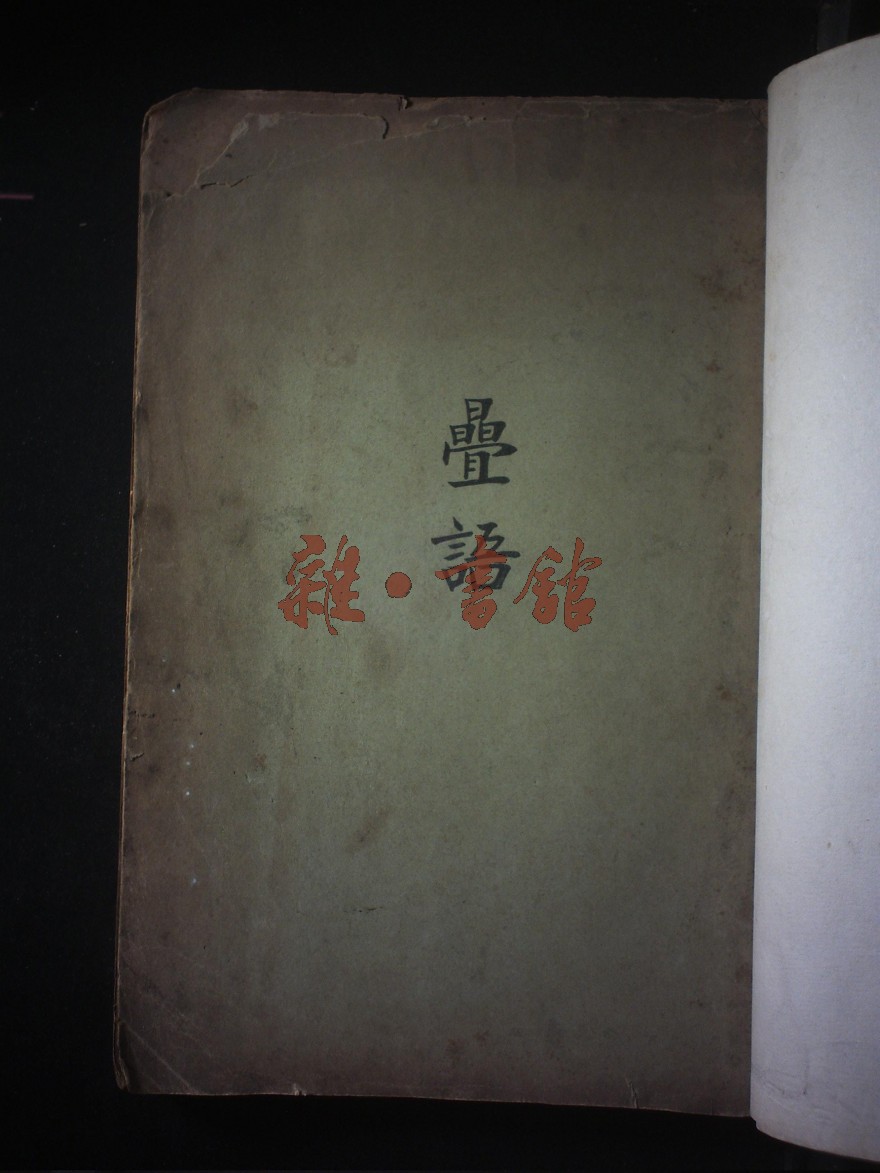 疊
語
雜·書館